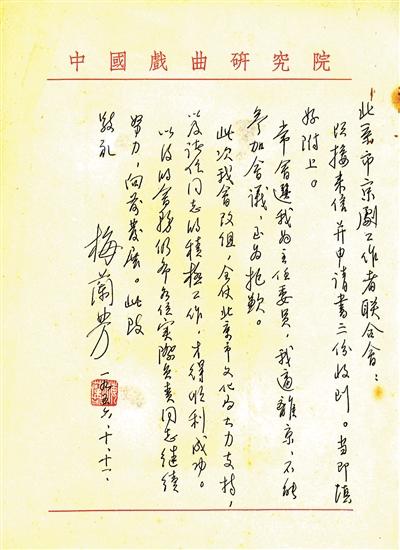 中國戲曲研究院
北京市京劇工作者聯合會：
頃接来信并申請書二份收到。当即填
好附上。
常會選我为主任委員，我適離京，不能
参加會議，甚为抱歉。
此次我會改组，全仗北京市文化局大力支持，
以及諸位同志的積極工作，才得順利成功。
以後的會務仍希各位實際負責同志继续
努力，向前發展。此致
敬礼
梅蘭芳
一九五六、十、十一、